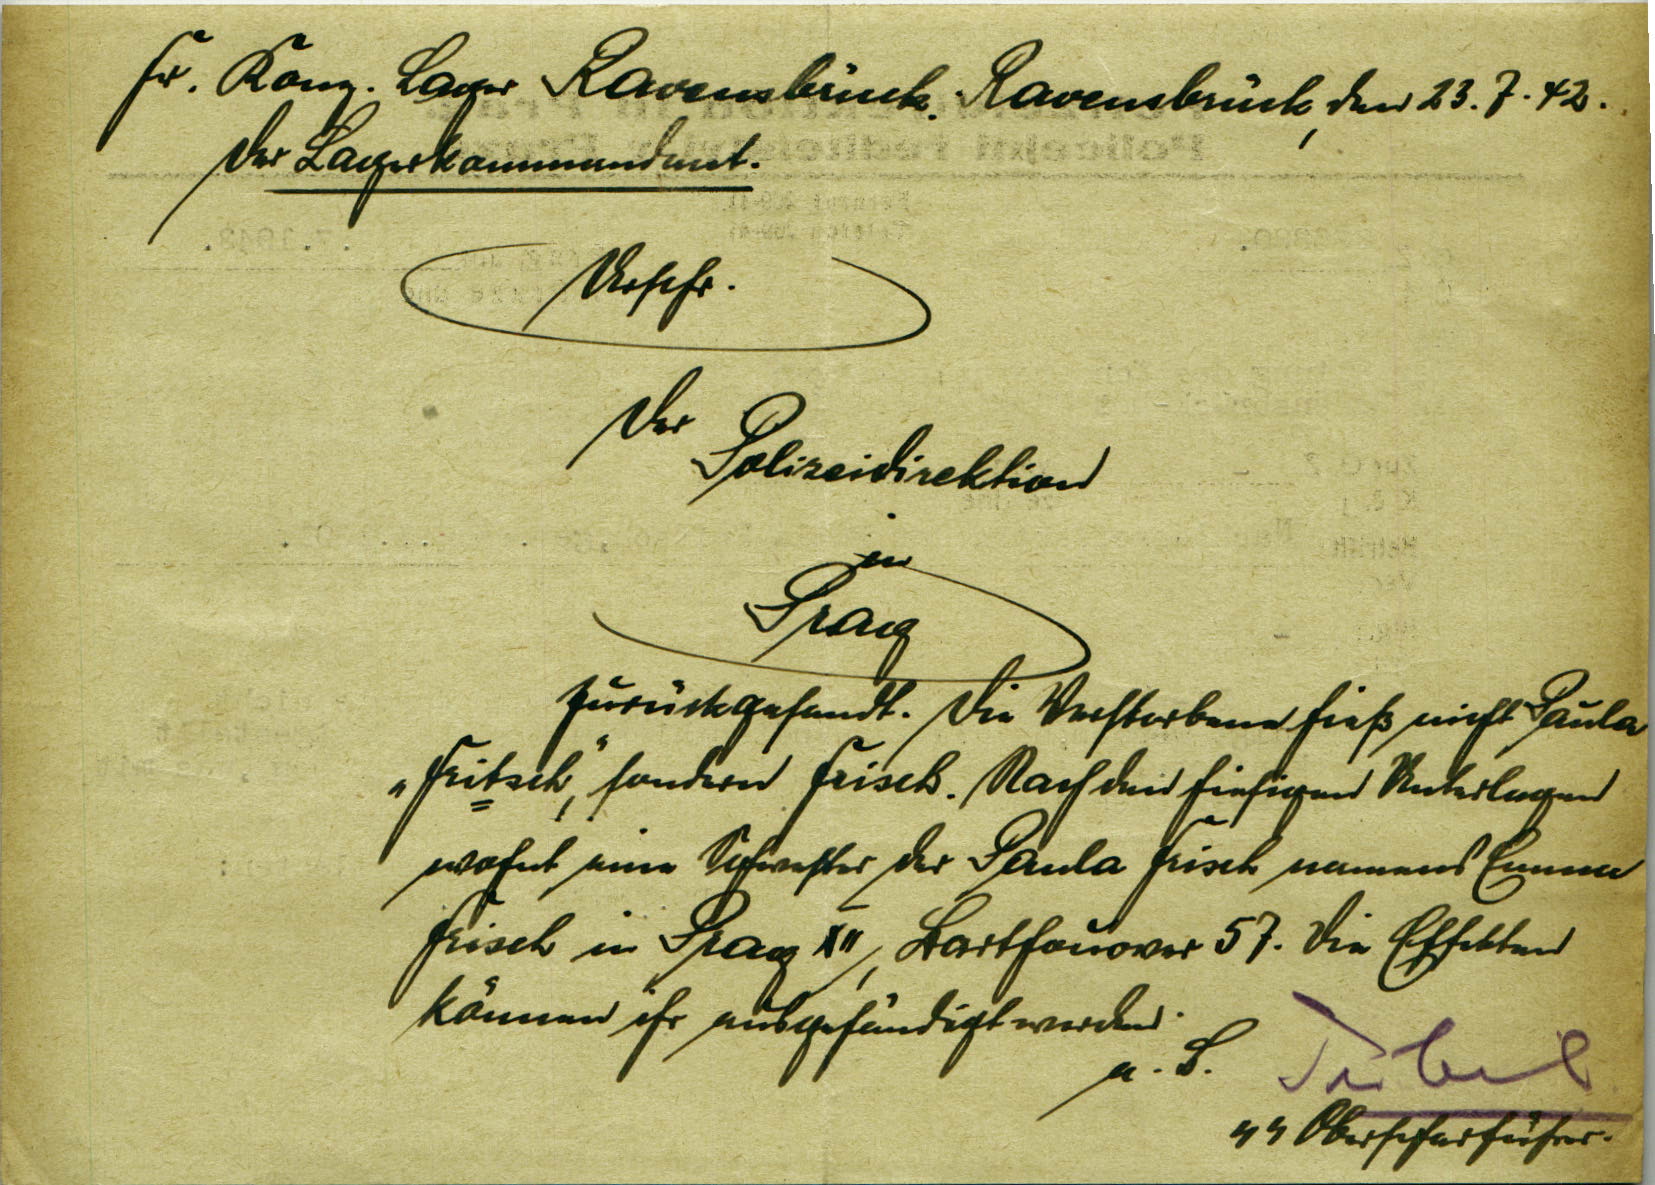 Fr. Konz. Lager Ravensbrück. Ravensbrück, den 23.7.42.
Der Lagerkommandant.
Urschr.
Der
Polizeidirektion
in
Prag
zurückgesandt. Die Verstorbene hieß nicht Paula
„Fritsch", sondern Frisch. Nach den hiesigen Unterlagen
wohnt eine Schwester der Paula Frisch namens Emma
Frisch in Prag XII, 57. Die Effekten
können ihr ausgehändigt werden.
SS Oberscharführer.